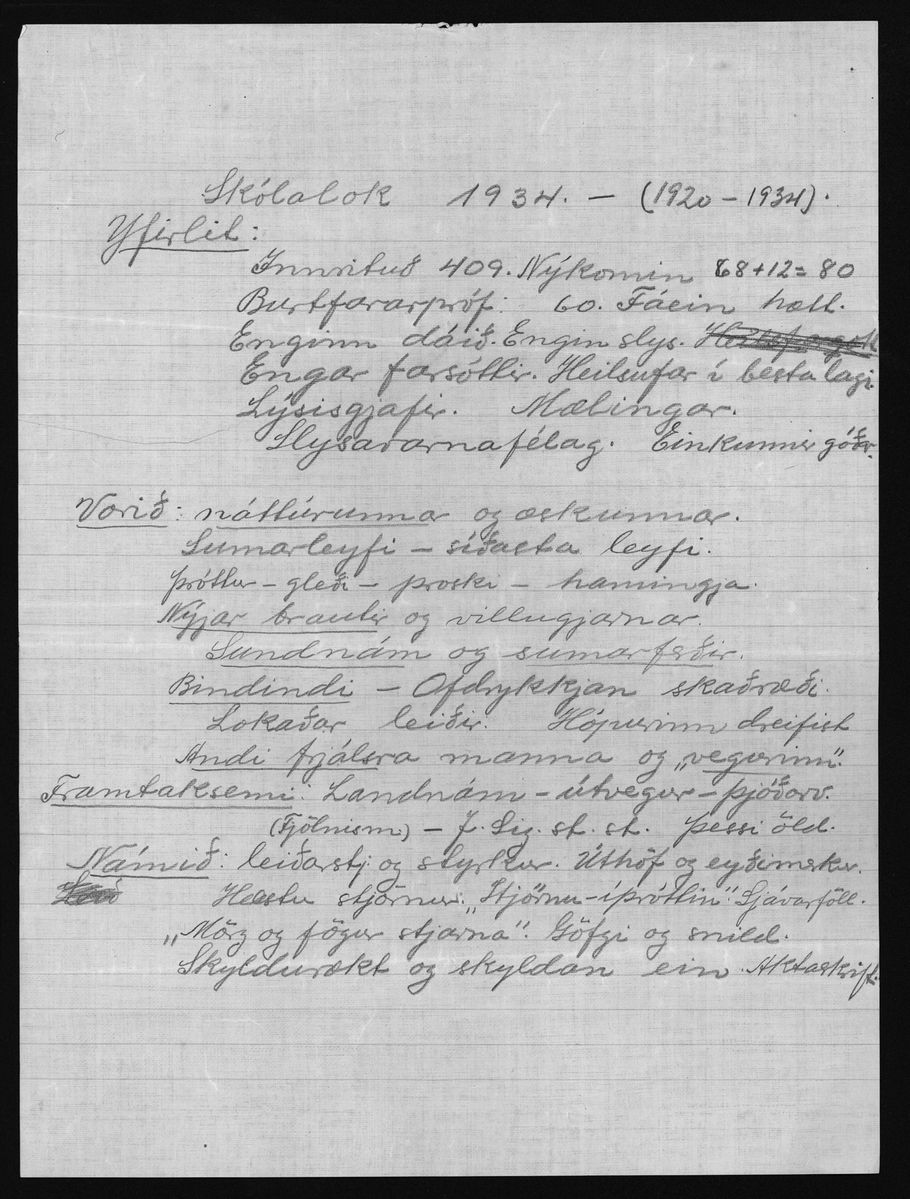 Skólalok 1934. – (1920 – 1934).
Yfirlit:
Innrituð 409. Nýkomin 68+12= 80
Burtfararpróf: 60. Fáein hætt.
Enginn dáið. Engin slys.
Engar farsóttir. Heilsufar í besta lagi.
Lýsisgjafir. Mælingar.
Slysavarnafélag. Einkunnir góðr.
Vorið: náttúrunnar og æskunnar.
Sumarleyfi – síðasta leyfi.
Þróttur – gleði – þroski – hamingja.
Nýjar brautir og villugjarnar.
Sundnám og sumarferðir.
Bindindi – Ofdrykkjan skaðræði.
Lokaðar leiðir. Hópurinn dreifist
Andi frjálsra manna og „vegurinn".
Framtaksemi: Landnám – útvegur – þjóðarv.
(Fjölnism) – J. Sig. st. st. Þessi öld.
Námið: leiðarstj og styrkur. Úthöf og eyðimerkur.
Hæstu stjörnur. „Stjörnu-íþróttin". Sjávarföll.
„Mörg og fögur stjarna". Göfgi og snild.
Skyldurækt og skyldan ein. Aktaskrift.